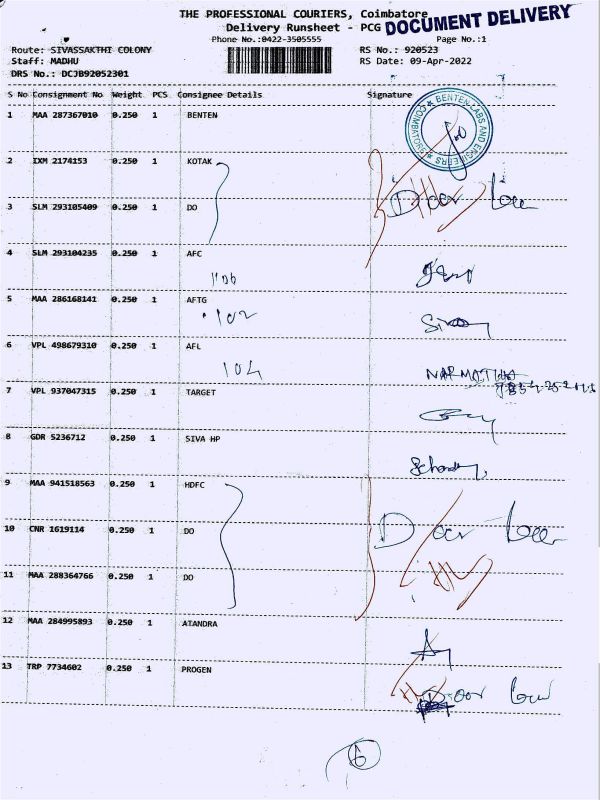 THE PROFESSIONAL COURIERS, Coimbatore
Delivery Runsheet - PCG
DOCUMENT DELIVERY
Phone No.:0422-3505555
Page No.:1
Route: SIVASSAKTHI COLONY
RS No.: 920523
Staff: MADHU
RS Date: 09-Apr-2022
DRS No.: DCJB92052301
S No Consignment No Weight PCS Consignee Details Signature
1 MAA 287367010 0.250 1 BENTEN
BENTEN LABS AND ENGINEERS COIMBATORE
2 IXM 2174153 0.250 1 KOTAK
Door Lock
3 SLM 293105409 0.250 1 DO
4 SLM 293104235 0.250 1 AFC
106
5 MAA 286168141 0.250 1 AFTG
102
6 VPL 498679310 0.250 1 AFL
104
7 VPL 937047315 0.250 1 TARGET
8 GDR 5236712 0.250 1 SIVA HP
9 MAA 941518563 0.250 1 HDFC
10 CNR 1619114 0.250 1 DO
Door Lock
11 MAA 288364766 0.250 1 DO
12 MAA 284995893 0.250 1 ATANDRA
13 TRP 7734602 0.250 1 PROGEN
Door Lock
6